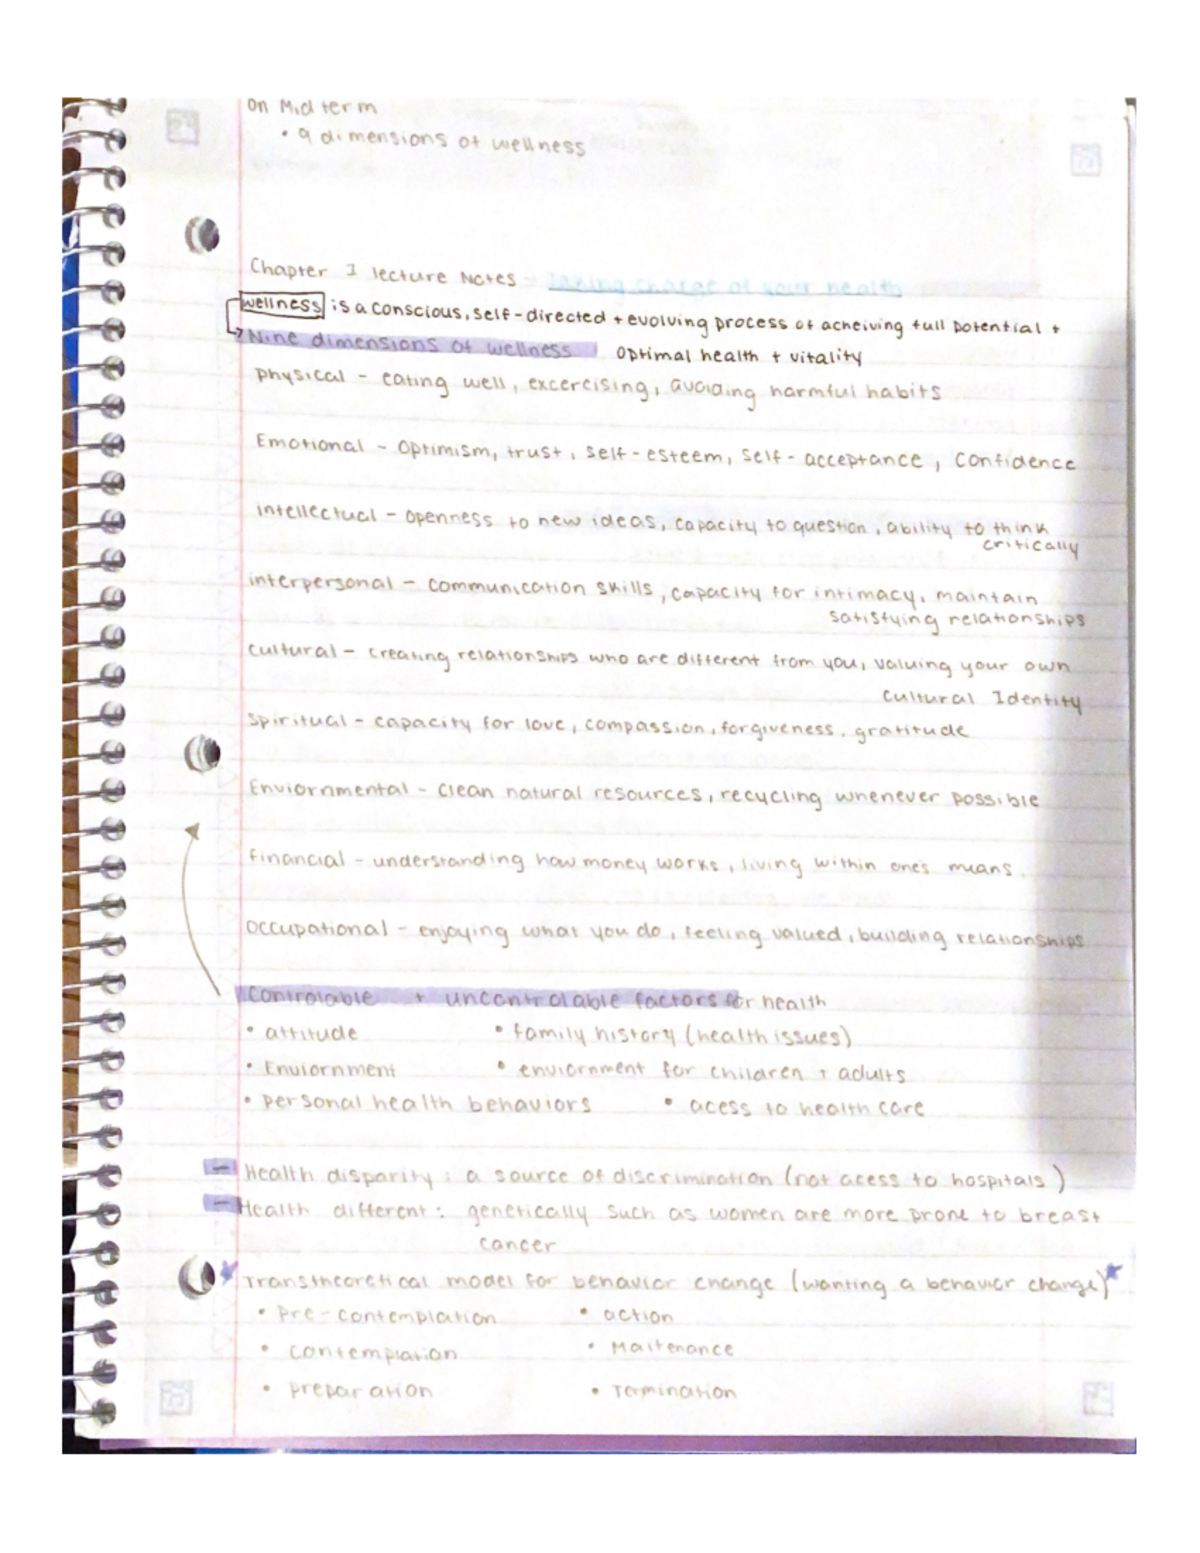 on Midterm
• 9 dimensions of wellness
Chapter 1 lecture Notes - Taking charge of your health
wellness is a conscious, self-directed + evolving process of acheiving full potential +
Nine dimensions of wellness optimal health + vitality
physical - eating well, excercising, avoiding harmful habits
Emotional - optimism, trust, self-esteem, self-acceptance, confidence
intellectual - openness to new ideas, capacity to question, ability to think
critically
interpersonal - communication skills, capacity for intimacy, maintain
satisfying relationships
cultural - creating relationships who are different from you, valuing your own
cultural Identity
spiritual - capacity for love, compassion, forgiveness, gratitude
Enviornmental - clean natural resources, recycling whenever possible
financial - understanding how money works, living within one's means.
occupational - enjoying what you do, feeling valued, building relationships
Controlable + uncontrolable factors for health
• attitude • family history (health issues)
• Enviornment • enviornment for children + adults
• personal health behaviors • acess to health care
- Health disparity: a source of discrimination (not acess to hospitals)
- Health different: genetically such as women are more prone to breast
cancer
Transtheoretical model for behavior change (wanting a behavior change)
• Pre-contemplation • action
• contemplation • Maitenance
• preparation • Termination